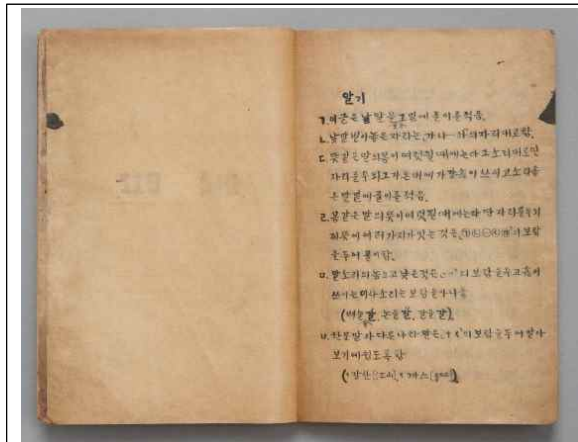 알기
ㄱ. 이글은 낱말을 그 곁에 풀이를 적음.
ㄴ. 낱말 벌이놓은 자리는 「가나…하」의 자리대로 함.
ㄷ. 뜻같은 말의 몸이 여럿될 때에는 다 그 소리대로 딴
자리를 두되 그 가온대에 가장 흔이 쓰이고 소리 좋
은 말 곁에 풀이를 적음.
ㄹ. 몸같은 말의 뜻이 여럿될 때에는 다 딴 자리를 두되
뜻에 여러 가지가 잇는 것은 의 보람
을 두어 풀이함.
ㅁ. 말소리의 높으고 낮은 것은 의 보람을 두고 흔이
쓰이는 소리는 보람을
ㅂ. 한문말과 다른 나라 말은 「+ ×」의 보람을 두어 알아
보기에 쉽도록 함
(+강산[江山], ×까스[gas])